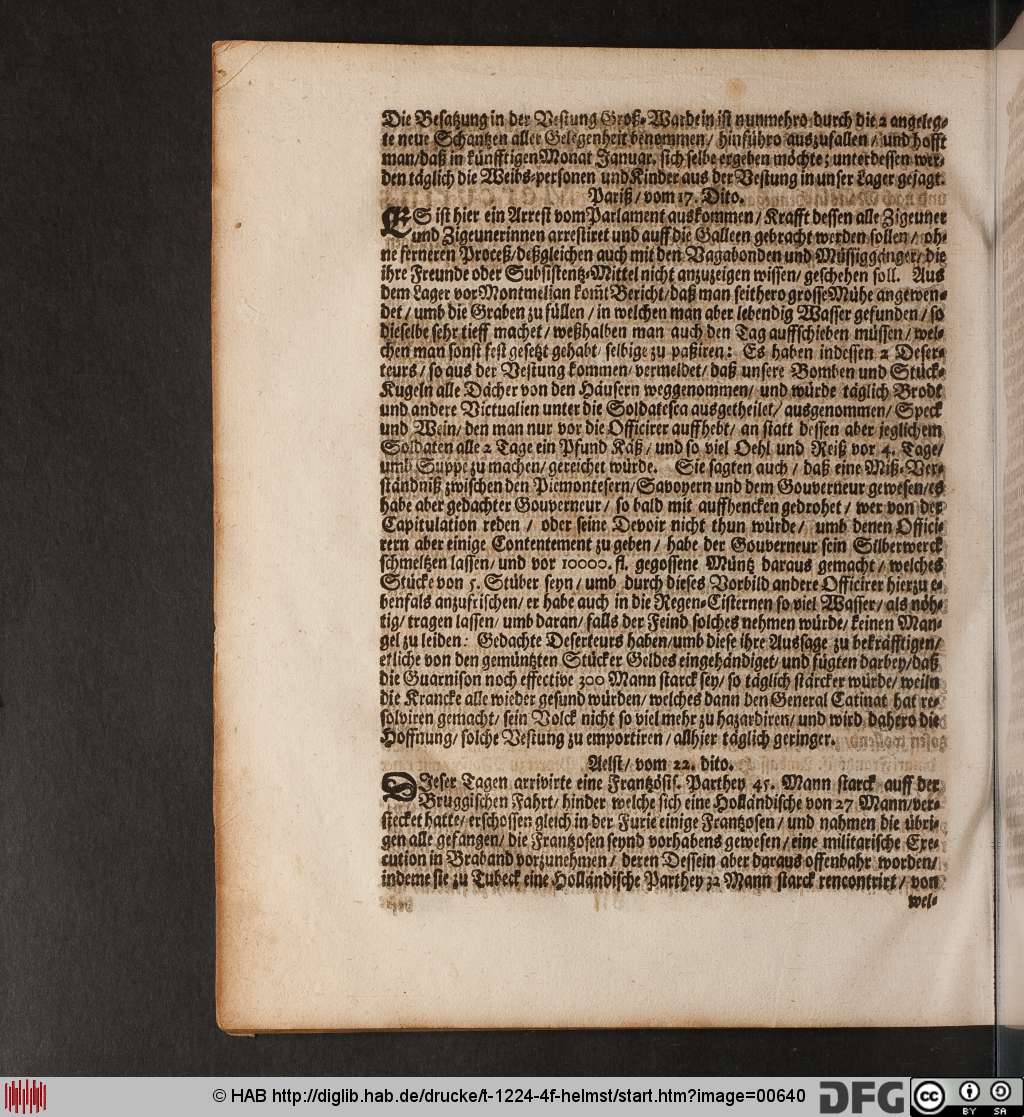 Die Besatzung in der Vestung Groß-Wardein ist nunmehro durch die 2 angeleg-
te neue Schantzen aller Gelegenheit benommen / hinführo auszufallen / und hofft
man/daß in künfftigen Monat Januar. sich selbe ergeben möchte; unterdessen wer-
den täglich die Weibs-personen und Kinder aus der Vestung in unser Lager gejagt.
Pariß / vom 17. Dito.
ES ist hier ein Arrest vom Parlament auskommen / Krafft dessen alle Zigeuner
und Zigeunerinnen arrestiret und auff die Galleen gebracht werden sollen / oh-
ne ferneren Proceß/deßgleichen auch mit den Vagabonden und Müssiggänger/ die
ihre Freunde oder Subsistentz-Mittel nicht anzuzeigen wissen/ geschehen soll. Aus
dem Lager vor Montmelian kom̃t Bericht/daß man seithero grosse Mühe angewen-
det / umb die Graben zu füllen / in welchen man aber lebendig Wasser gefunden / so
dieselbe sehr tieff machet / weßhalben man auch den Tag auffschieben müssen / wel-
chen man sonst fest gesetzt gehabt/ selbige zu paßiren: Es haben indessen 2 Deser-
teurs / so aus der Vestung kommen/ vermeldet/ daß unsere Bomben und Stück-
Kugeln alle Dächer von den Häusern weggenommen/ und würde täglich Brodt
und andere Victualien unter die Soldatesca ausgetheilet/ ausgenommen/ Speck
und Wein/ den man nur vor die Officirer auffhebt/ an statt dessen aber jeglichem
Soldaten alle 2 Tage ein Pfund Käß / und so viel Oehl und Reiß vor 4. Tage/
umb Suppe zu machen/ gereichet würde. Sie sagten auch / daß eine Miß-Ver-
ständniß zwischen den Piemontesern/ Savoyern und dem Gouverneur gewesen/es
habe aber gedachter Gouverneur / so bald mit auffhencken gedrohet / wer von der
Capitulation reden / oder seine Devoir nicht thun würde / umb denen Offici-
rern aber einige Contentement zu geben / habe der Gouverneur sein Silberwerck
schmeltzen lassen/ und vor 10000. fl. gegossene Müntz daraus gemacht / welches
Stücke von 5. Stüber seyn / umb durch dieses Vorbild andere Officirer hierzu e-
benfals anzufrischen/ er habe auch in die Regen-Cisternen so viel Wasser/ als nöh-
tig/ tragen lassen/ umb daran/ falls der Feind solches nehmen würde/ keinen Man-
gel zu leiden: Gedachte Deserteurs haben/umb diese ihre Aussage zu bekräfftigen/
etliche von den gemüntzten Stücker Geldes eingehändiget/ und fügten darbey/daß
die Guarnison noch effective 300 Mann starck sey/ so täglich stärcker würde/ weiln
die Krancke alle wieder gesund würden/ welches dann den General Catinat hat re-
solviren gemacht/ sein Volck nicht so viel mehr zu hazardiren/ und wird dahero die
Hoffnung/ solche Vestung zu emportiren / allhier täglich geringer.
Aelst/ vom 22. dito.
DIeser Tagen arrivirte eine Frantzösis. Parthey 45. Mann starck auff der
Bruggischen Fahrt/ hinder welche sich eine Holländische von 27 Mann/ver-
stecket hatte/ erschossen gleich in der Furie einige Frantzosen / und nahmen die übri-
gen alle gefangen/ die Frantzosen seynd vorhabens gewesen/ eine militarische Exe-
cution in Braband vorzunehmen / deren Dessein aber daraus offenbahr worden/
indeme sie zu Tubeck eine Holländische Parthey 32 Mann starck rencontrirt / von
wel-
© HAB http://diglib.hab.de/drucke/t-1224-4f-helmst/start.htm?image=00640
DFG
cc
BY SA